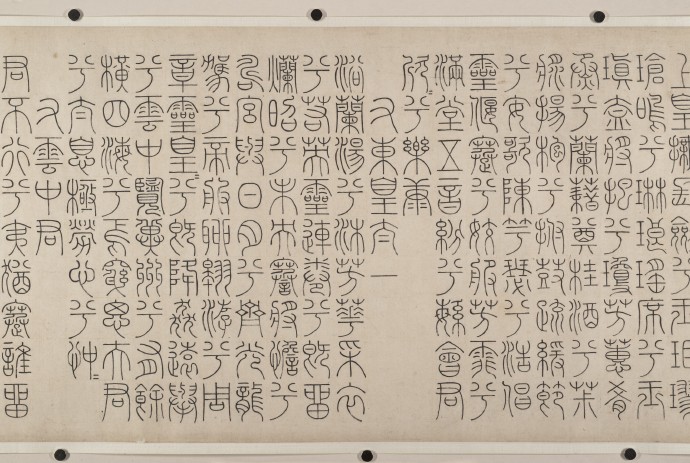 上皇撫長劍兮玉珥璆
瑲鳴兮琳琅瑤席兮玉
瑱盍將把兮瓊芳蕙肴
烝兮蘭藉奠桂酒兮茮
漿揚枹兮拊鼓疏緩節
兮安歌陳竽瑟兮浩倡
靈偃蹇兮姣服芳菲兮
滿堂五音紛兮繁會君
欣〃兮樂康
右東皇太一
浴蘭湯兮沐芳華采衣
兮若英靈連蜷兮既留
爛昭兮未央蹇將憺兮
壽宮與日月兮齊光龍
駕兮帝服聊翱游兮周
章靈皇〃兮既降猋遠舉
兮雲中覽冀州兮有餘
橫四海兮焉窮思夫君
兮太息極勞心兮忡〃
右雲中君
君不行兮夷猶蹇誰留